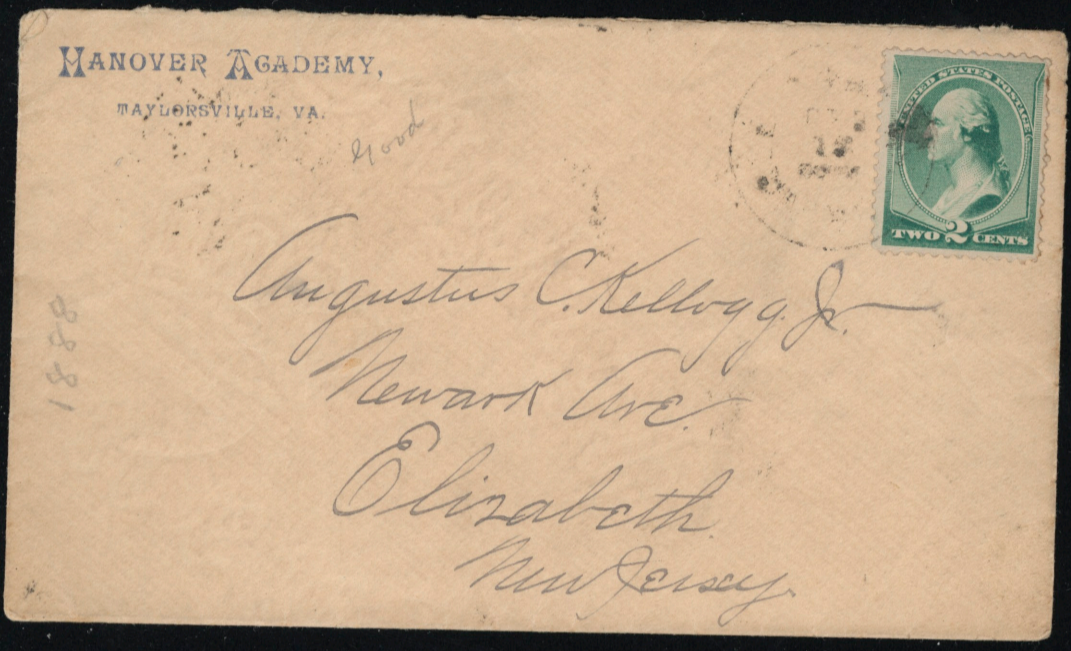 HANOVER ACADEMY,
TAYLORSVILLE, VA.
Good
UNITED STATES POSTAGE
TWO 2 CENTS
Augustus C. Kellogg. Jr.
Newark Ave.
Elizabeth
New Jersey.
1888